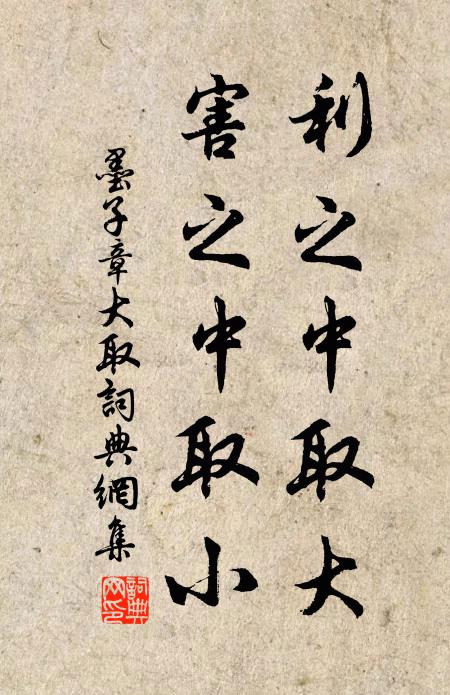 利之中取大
害之中取小
墨子章大取詞典網集
詞典網印